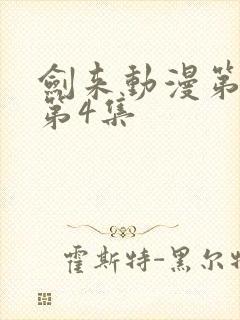 劍来動漫第
第4集
霍斯特-黑尔特